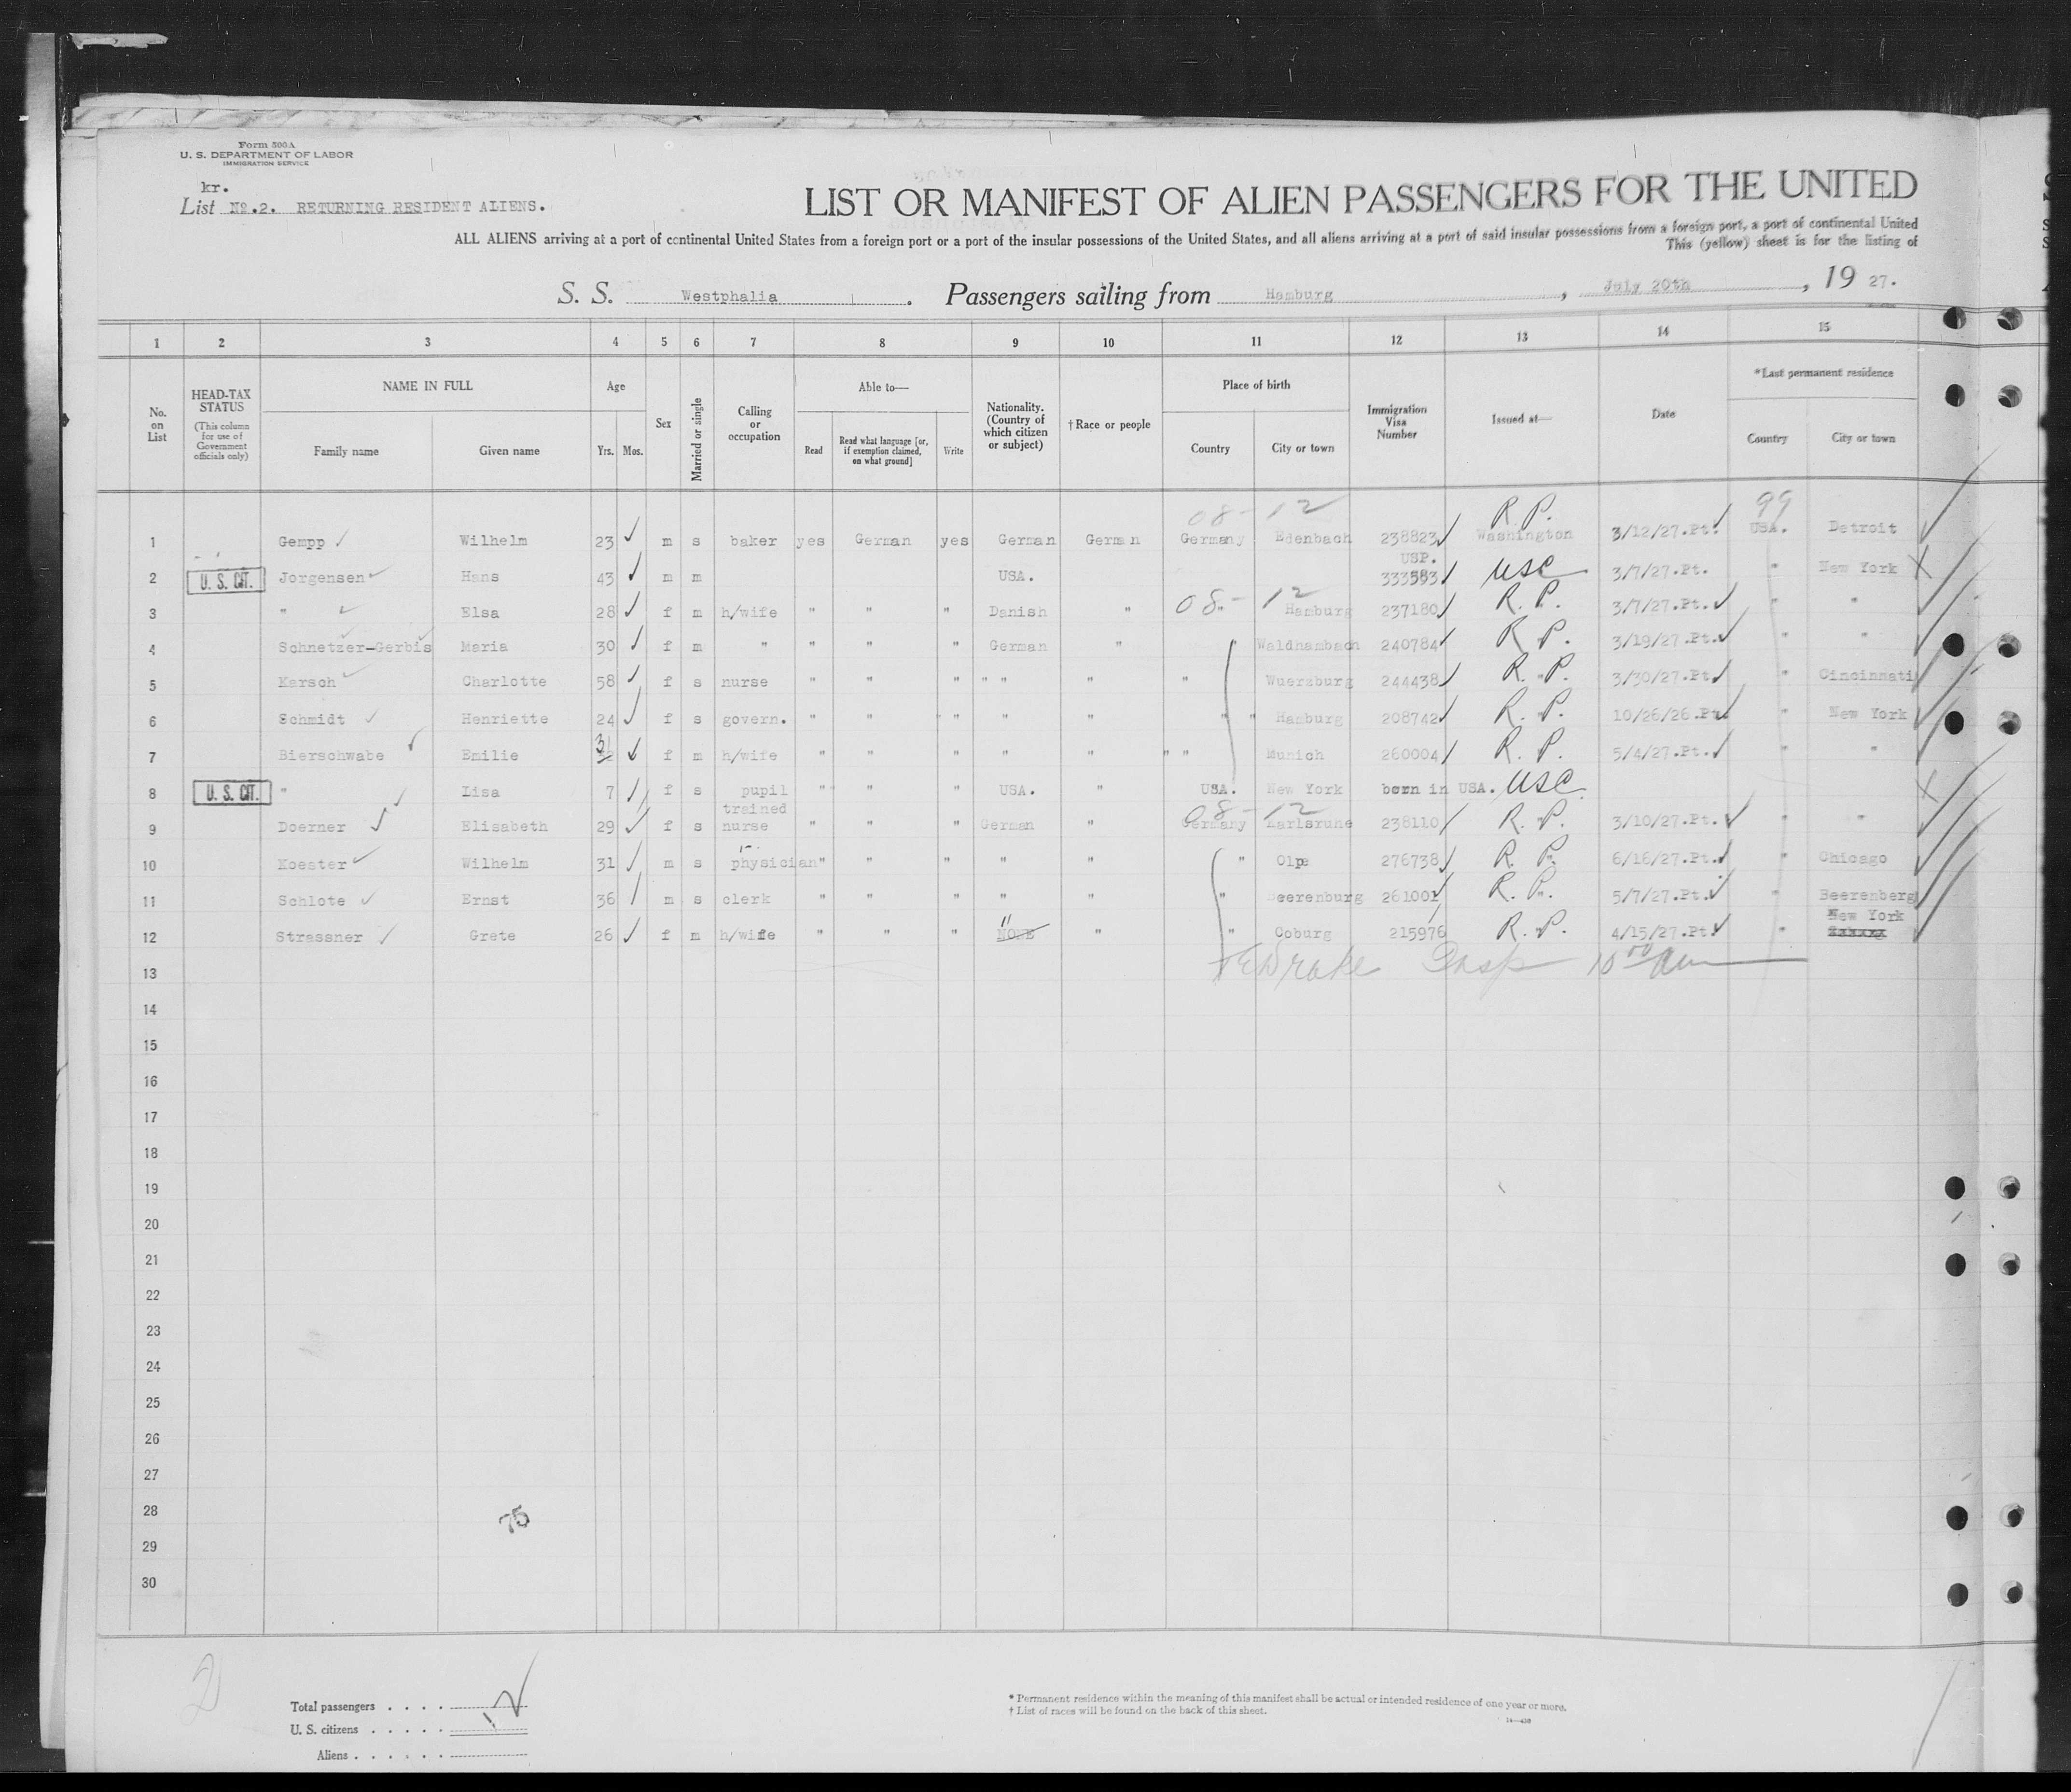 Form 500A
U. S. DEPARTMENT OF LABOR
IMMIGRATION SERVICE
kr.
List No.2. RETURNING RESIDENT ALIENS.
LIST OR MANIFEST OF ALIEN PASSENGERS FOR THE UNITED
ALL ALIENS arriving at a port of continental United States from a foreign port or a port of the insular possessions of the United States, and all aliens arriving at a port of said insular possessions from a foreign port, a port of continental United
This (yellow) sheet is for the listing of
S. S. Westphalia . Passengers sailing from Hamburg , July 20th , 19 27.
1 2 3 4 5 6 7 8 9 10 11 12 13 14 15
No. on List
HEAD-TAX STATUS (This column for use of Government officials only)
NAME IN FULL Family name Given name
Age Yrs. Mos.
Sex
Married or single
Calling or occupation
Able to— Read Read what language [or, if exemption claimed, on what ground] Write
Nationality. (Country of which citizen or subject)
†Race or people
Place of birth Country City or town
Immigration Visa Number
Issued at—
Date
*Last permanent residence Country City or town
08-12 R.P. 99
1 Gempp Wilhelm 23 m s baker yes German yes German German Germany Edenbach 238823 Washington 3/12/27.Pt. USA. Detroit
USP.
2 U. S. CIT. Jorgensen Hans 43 m m USA. 333583 USC 3/7/27.Pt. " New York
3 " Elsa 28 f m h/wife " " " Danish " 08-12 " Hamburg 237180 R.P. 3/7/27.Pt. " "
4 Schnetzer-Gerbis Maria 30 f m " " " " German " Waldhambach 240784 R.P. 3/19/27.Pt. " "
5 Karsch Charlotte 58 f s nurse " " " " " " " Wuerzburg 244438 R.P. 3/30/27.Pt. " Cincinnati
6 Schmidt Henriette 24 f s govern. " " " " " " " Hamburg 208742 R.P. 10/26/26.Pt. " New York
7 Bierschwabe Emilie 31 f m h/wife " " " " " " " Munich 260004 R.P. 5/4/27.Pt. " "
8 U. S. CIT. " Lisa 7 f s pupil " " " USA. " USA. New York born in USA. USC
trained 08-12
9 Doerner Elisabeth 29 f s nurse " " " German " Germany Karlsruhe 238110 R.P. 3/10/27.Pt. " "
10 Koester Wilhelm 31 m s physician " " " " " " Olpe 276738 R.P. 6/16/27.Pt. " Chicago
11 Schlote Ernst 36 m s clerk " " " " " " Beerenburg 261001 R.P. 5/7/27.Pt. " Beerenberg
New York
12 Strassner Grete 26 f m h/wife " " " NONE " " " Coburg 215976 R.P. 4/15/27.Pt. "
13 Drake Insp 10 00 am
14
15
16
17
18
19
20
21
22
23
24
25
26
27
28
75
29
30
2
Total passengers . . . .
U. S. citizens . . . . .
Aliens . . . . . .
12
* Permanent residence within the meaning of this manifest shall be actual or intended residence of one year or more.
† List of races will be found on the back of this sheet.